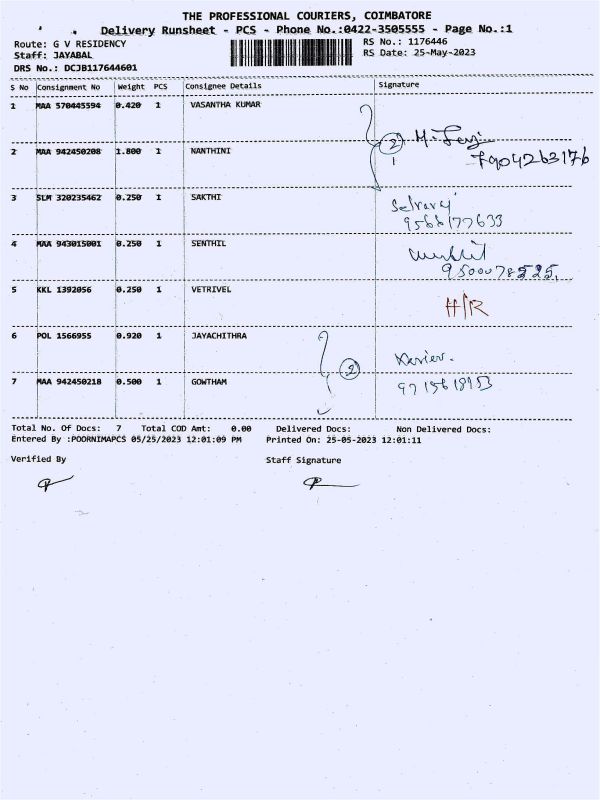 THE PROFESSIONAL COURIERS, COIMBATORE
Delivery Runsheet - PCS - Phone No.:0422-3505555 - Page No.:1
Route: G V RESIDENCY RS No.: 1176446
Staff: JAYABAL RS Date: 25-May-2023
DRS No.: DCJB117644601
S No Consignment No Weight PCS Consignee Details Signature
1 MAA 570445594 0.420 1 VASANTHA KUMAR
2
7904263176
2 MAA 942450208 1.800 1 NANTHINI
3 SLM 320235462 0.250 1 SAKTHI Selvaraj
9566177633
4 MAA 943015001 0.250 1 SENTHIL
9500078525
5 KKL 1392056 0.250 1 VETRIVEL H/R
6 POL 1566955 0.920 1 JAYACHITHRA Xavier.
2
7 MAA 942450218 0.500 1 GOWTHAM
Total No. Of Docs: 7 Total COD Amt: 0.00 Delivered Docs: Non Delivered Docs:
Entered By :POORNIMAPCS 05/25/2023 12:01:09 PM Printed On: 25-05-2023 12:01:11
Verified By Staff Signature